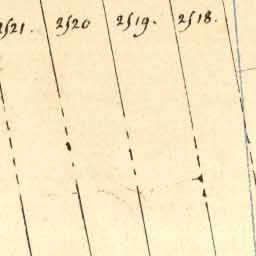 2521. 2520 2519. 2518.